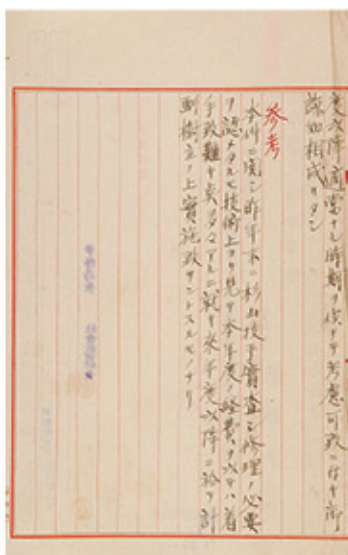 度以降適當ナル時期ヲ俟チテ考慮可致ニ付キ御
諒知相成リタシ
参考
本件ニ関シ昨年末ニ杉山技手實査シ修理ノ必要
ヲ認メタルモ技術上ヨリ見テ本年度ノ経費ヲ以テハ着
手致難キ点多々アルニ就キ来年度以降ニ於テ計
劃樹立ノ上實施致サントスルモノナリ